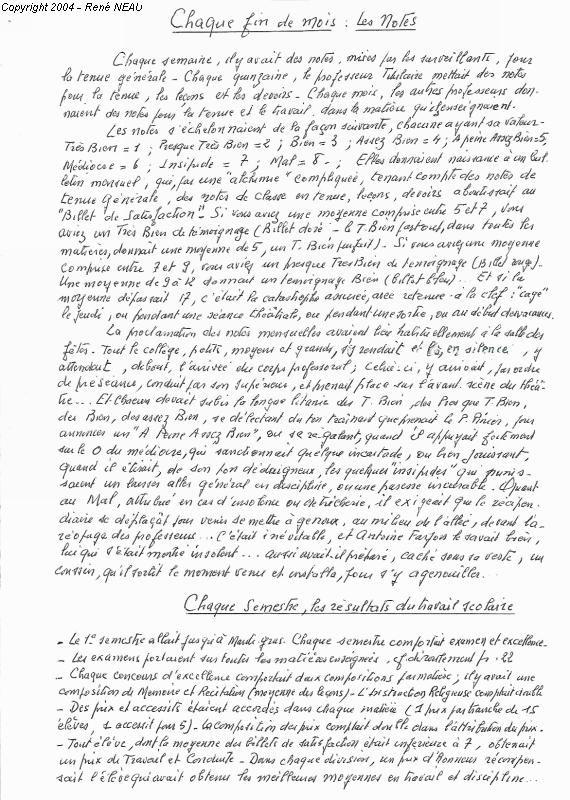 Copyright 2004 - René NEAU
Chaque fin de mois : Les Notes
Chaque semaine, il y avait des notes, mises par les surveillants, pour
la tenue générale - Chaque quinzaine, le professeur Titulaire mettait des notes
pour la tenue, les leçons et les devoirs - Chaque mois, les autres professeurs don-
naient des notes pour la tenue et le travail dans la matière qu'ils enseignaient.
Les notes s'échelonnaient de la façon suivante, chacune ayant sa valeur -
Très Bien = 1 ; Presque Très Bien = 2 ; Bien = 3 ; Assez Bien = 4 ; A peine Assez Bien = 5,
Médiocre = 6 ; Insipide = 7 ; Mal = 8 - ; Elles donnaient naissance à un bul
letin mensuel, qui, par une "alchimie" compliquée, tenant compte des notes de
tenue générale, des notes de classe en tenue, leçons, devoirs aboutissait au
"Billet de Satisfaction". Si vous aviez une moyenne comprise entre 5 et 7, vous
aviez un Très Bien de témoignage (Billet doré - le T. Bien partout, dans toutes les
matières, donnait une moyenne de 5, un T. Bien parfait) - Si vous aviez une moyenne
comprise entre 7 et 9, vous aviez un presque Très Bien de témoignage (Billet rouge) -
Une moyenne de 9 à 12 donnait un témoignage Bien (billet bleu)... Et si la
moyenne dépassait 17, c'était la catastrophe assurée, avec retenue à la clef : "cagé"
le jeudi, ou pendant une séance théâtrale, ou pendant une sortie, ou au début des vacances.
La proclamation des notes mensuelles avaient lieu habituellement à la salle des
fêtes - Tout le collège, petits, moyens et grands, s'y rendait et là, en silence, y
attendait, debout, l'arrivée du corps professoral ; Celui-ci, y arrivait, par ordre
de préséance, conduit par son Supérieur, et prenait place sur l'avant-scène du théâ-
tre... Et chacun devait subir la longue litanie des T. Bien, des Presque T. Bien,
des Bien, des assez Bien, se délectant du ton traînant que prenait le P. pour
annoncer un "A Peine Assez Bien", ou se régalant, quand il appuyait fortement
sur le O du médiocre, qui sanctionnait quelque incartade, ou bien jouissant,
quand il étirait, de son ton dédaigneux, les quelques "insipides" qui punis-
saient un laisser aller général en discipline, ou une paresse incurable - Quant
au Mal, attribué en cas d'insolence ou de tricherie, il exigeait que le récipien-
diaire se déplaçât pour venir se mettre à genoux, au milieu de l'allée, devant l'a-
réopage des professeurs... C'était inévitable, et Antoine le savait bien,
lui qui s'était montré insolent... aussi avait-il préparé, caché sous sa veste, un
coussin, qu'il sortit le moment venu et installa, pour s'y agenouiller...
Chaque Semestre, les résultats du travail scolaire
- Le 1e semestre allait jusqu'à Mardi gras. Chaque semestre comportait examen et excellence -
- Les examens portaient sur toutes les matières enseignées, cf déroulement p. 22
- Chaque concours d'excellence comportait deux compositions par matière ; il y avait une
composition de Mémoire et Récitation (moyenne des leçons) - L'Instruction Religieuse comptait double
- Des prix et accessits étaient accordés dans chaque matière (1 prix par tranche de 15
élèves, 1 accessit pour 5) - La composition du prix comptait double dans l'attribution du prix.
- Tout élève, dont la moyenne des billets de satisfaction était inférieure à 7, obtenait
un prix de Travail et Conduite - Dans chaque division, un prix d'Honneur récompen-
sait l'élève qui avait obtenu les meilleures moyennes en travail et discipline...